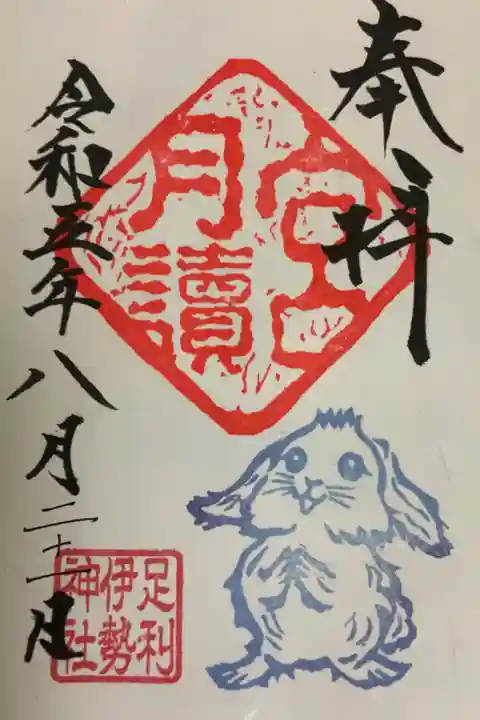 奉拝
宮
月讀
令和五年八月二十一日
足利
伊勢
神社